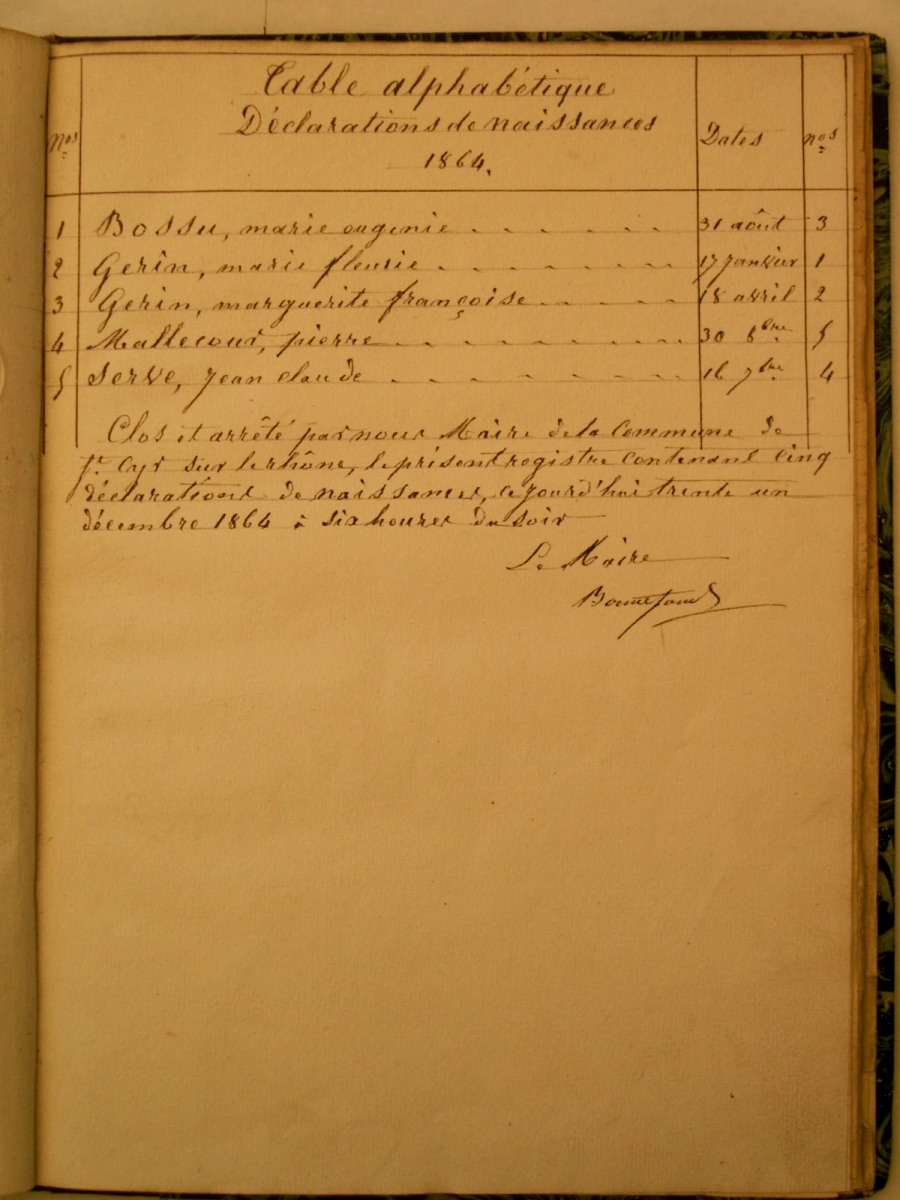 Table alphabétique
Déclarations de naissances
1864.
Nos Dates nos
1 Bossu, marie eugenie . . . . . . 31 août 3
2 Gerin, marie fleurie . . . . . . . 17 janvier 1
3 Gerin, marguerite françoise . . . . 18 avril 2
4 Mallecour, pierre . . . . . . . . 30 8bre 5
5 Serve, jean claude . . . . . . . . 16 7bre 4
Clos et arrêté par nous Maire de la Commune de
St Cyr sur le rhône, le présent registre contenant Cinq
déclarations de naissances, ce jourd'hui trente un
décembre 1864 à six heures du soir
Le Maire
Bonnefond